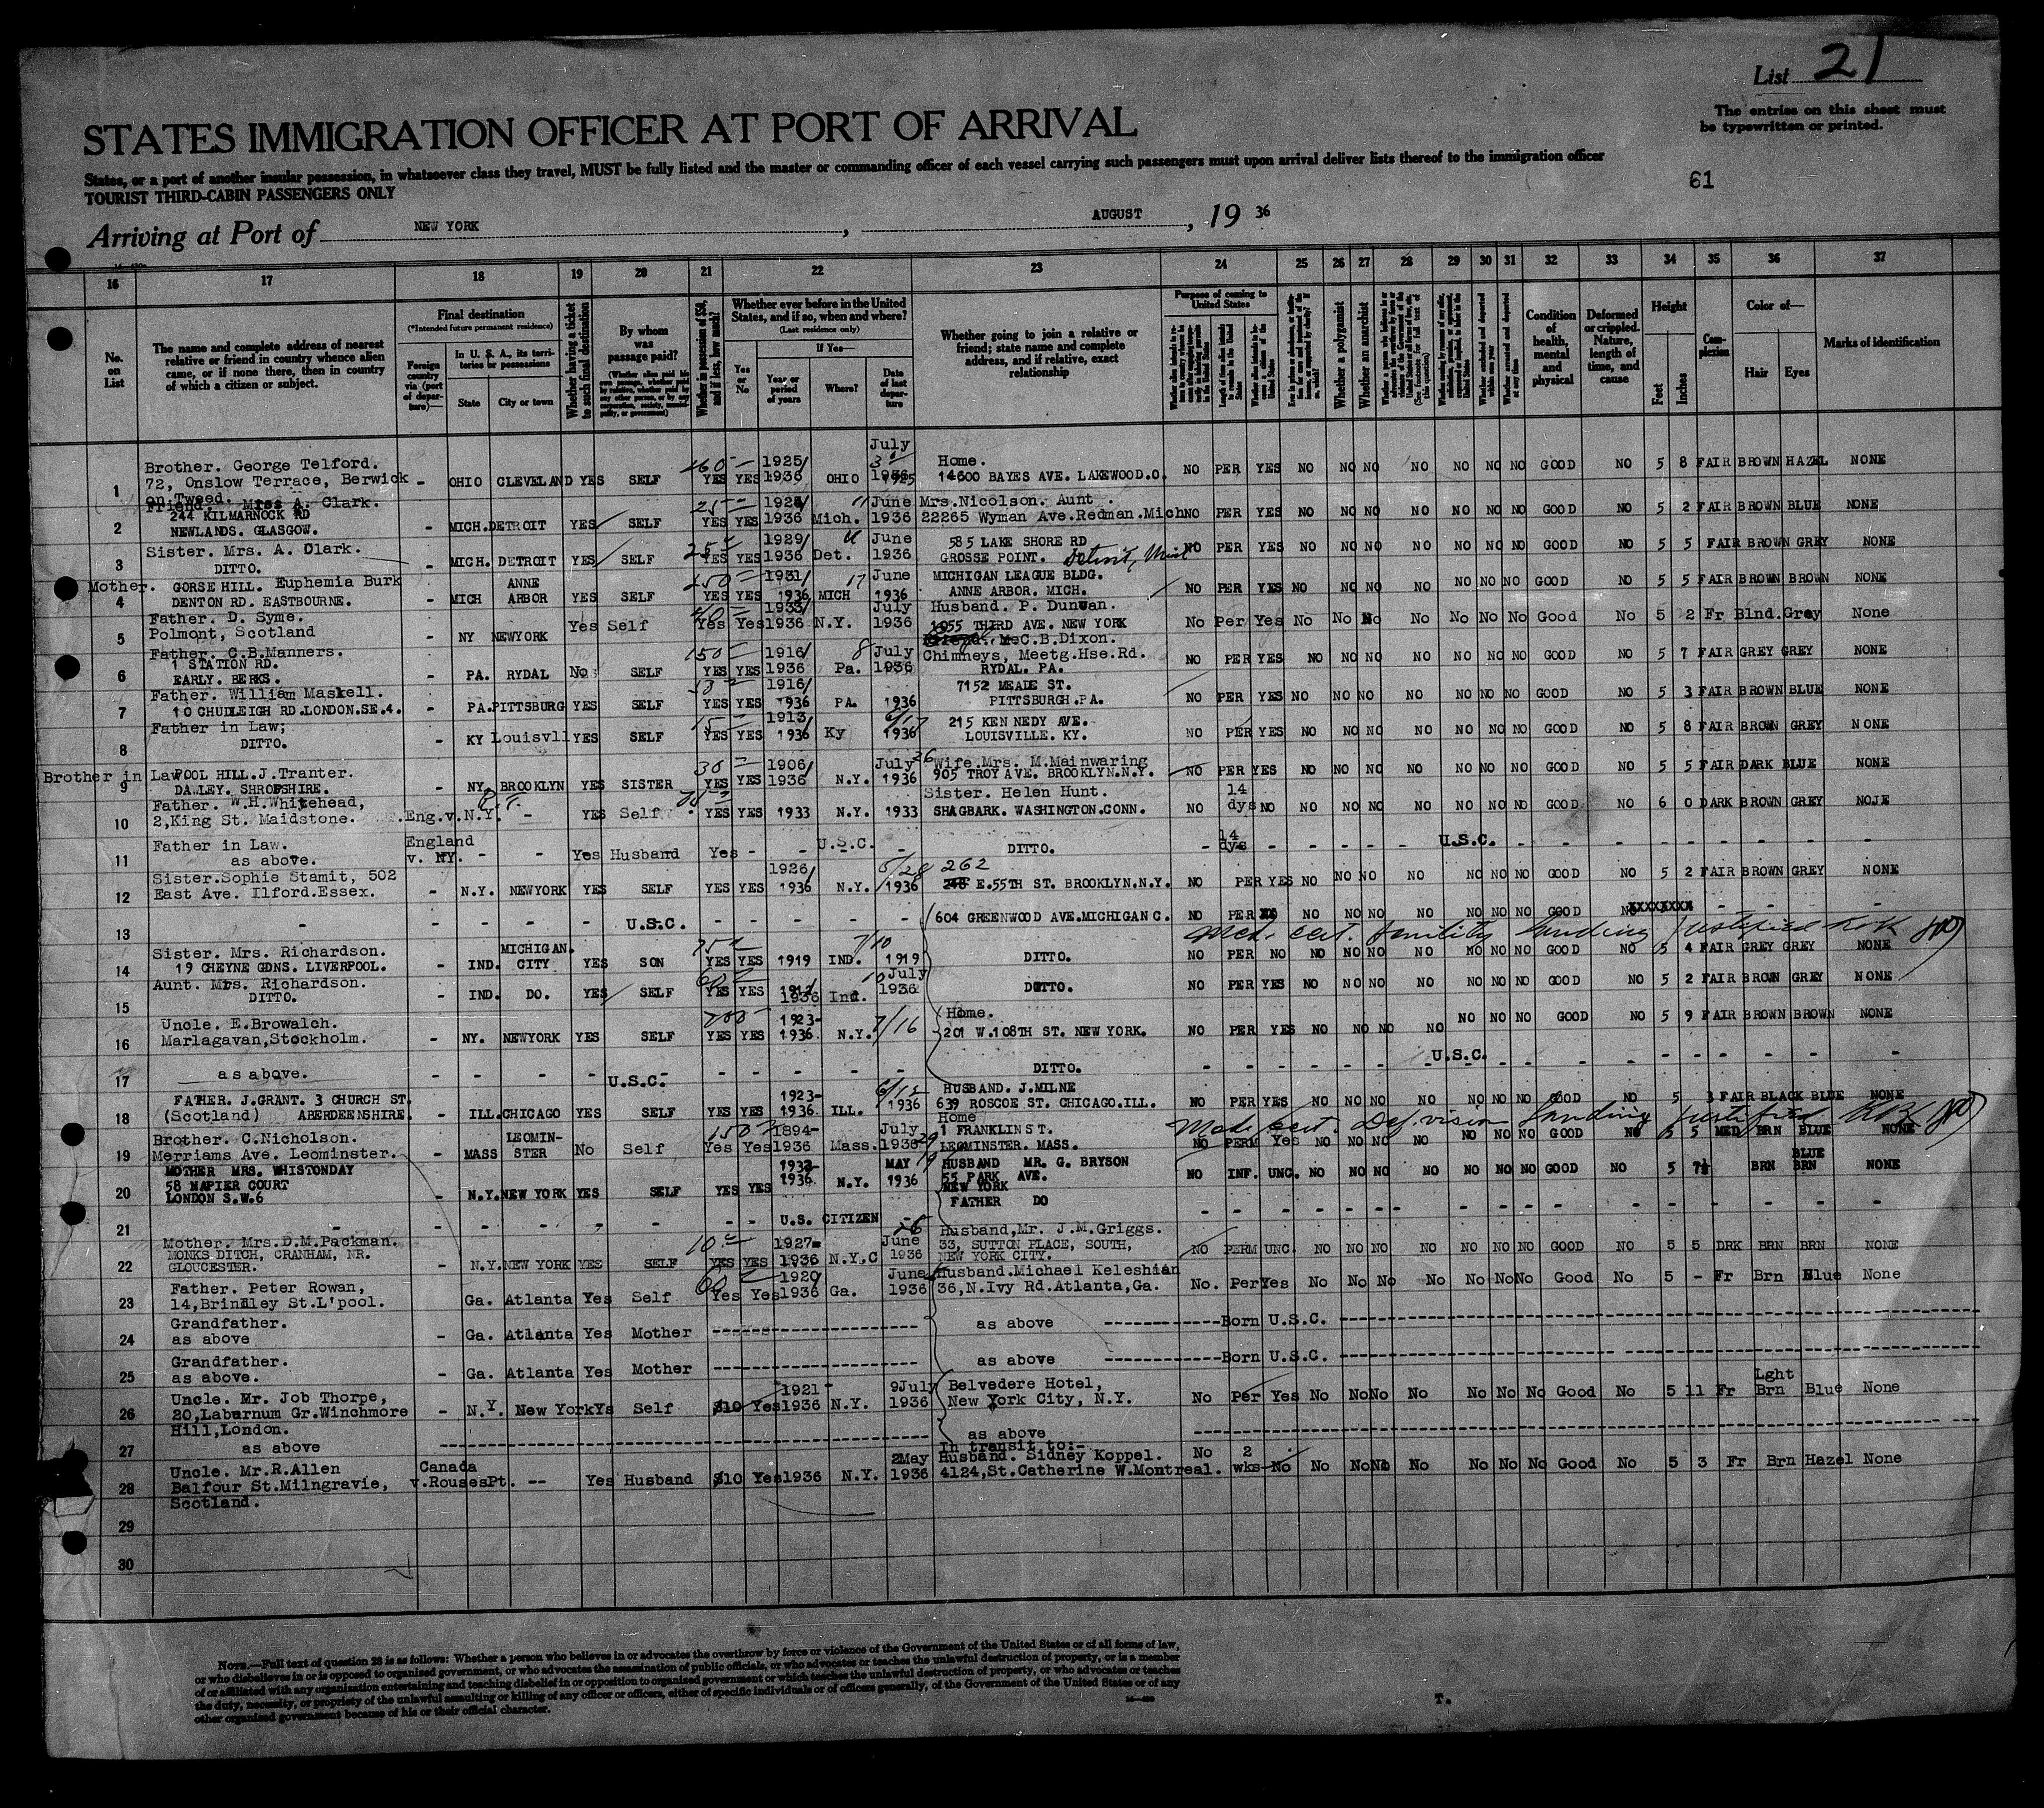 List 21
The entries on this sheet must
be typewritten or printed.
STATES IMMIGRATION OFFICER AT PORT OF ARRIVAL
States, or a port of another insular possession, in whatsoever class they travel, MUST be fully listed and the master or commanding officer of each vessel carrying such passengers must upon arrival deliver lists thereof to the immigration officer
TOURIST THIRD-CABIN PASSENGERS ONLY
61
Arriving at Port of NEW YORK, AUGUST, 19 36
16 17 18 19 20 21 22 23 24 25 26 27 28 29 30 31 32 33 34 35 36 37
No. on List
The name and complete address of nearest
relative or friend in country whence alien
came, or if none there, then in country
of which a citizen or subject.
Final destination
(*Intended future permanent residence)
Foreign country via (port of departure)—
In U. S. A., its territories or possessions
State
City or town
Whether having a ticket to such final destination
By whom was passage paid?
Whether in possession of $50, and if less, how much?
Whether ever before in the United
States, and if so, when and where?
(Last residence only)
Yes or No
If Yes—
Year or period of years
Where?
Date of last departure
Whether going to join a relative or
friend; state name and complete
address, and if relative, exact
relationship
Purpose of coming to United States
Whether a polygamist
Whether an anarchist
Condition of health, mental and physical
Deformed or crippled. Nature, length of time, and cause
Height
Feet
Inches
Complexion
Color of—
Hair
Eyes
Marks of identification
1 Brother. George Telford. 72, Onslow Terrace, Berwick on Tweed. - OHIO CLEVELAND YES SELF 460 YES YES 1925/1936 OHIO July 1936 Home. 14600 BAYES AVE. LAKEWOOD.O. NO PER YES NO NO NO NO NO NO NO GOOD NO 5 8 FAIR BROWN HAZEL NONE
2 Friend. Mrs A. Clark. 244 KILMARNOCK RD NEWLANDS. GLASGOW. - MICH. DETROIT YES SELF 25 YES YES 1936 Mich. 11 June 1936 Mrs.Nicolson. Aunt. 22265 Wyman Ave.Redman.Mich NO PER YES NO NO NO NO NO NO NO GOOD NO 5 2 FAIR BROWN BLUE NONE
3 Sister. Mrs. A. Clark. DITTO. - MICH. DETROIT YES SELF 25 YES YES 1929/1936 Det. June 1936 585 LAKE SHORE RD GROSSE POINT. Detroit, Mich NO PER YES NO NO NO NO NO NO NO GOOD NO 5 5 FAIR BROWN GREY NONE
4 Mother. GORSE HILL. Euphemia Burk DENTON RD. EASTBOURNE. - MICH ANNE ARBOR YES SELF 150 YES YES 1931/1936 MICH 17 June 1936 MICHIGAN LEAGUE BLDG. ANNE ARBOR. MICH. NO PER YES NO NO NO NO NO NO NO GOOD NO 5 5 FAIR BROWN BROWN NONE
5 Father. D. Syme. Polmont, Scotland - NY NEWYORK Yes Self 40 Yes Yes 1933/1936 N.Y. July 1936 Husband. P. Dunwan. 1055 THIRD AVE. NEW YORK No Per Yes No No No No No No No Good No 5 2 Fr Blnd. Grey None
6 Father. C.B.Manners. 1 STATION RD. EARLY. BERKS. - PA. RYDAL No SELF 150 YES YES 1916/1936 Pa. 8 July 1936 McC.B.Dixon. Chimneys, Meetg.Hse.Rd. RYDAL. PA. NO PER YES NO NO NO NO NO NO NO GOOD NO 5 7 FAIR GREY GREY NONE
7 Father. William Maskell. 10 CHUDLEIGH RD.LONDON.SE.4. - PA. PITTSBURG YES SELF 50 YES YES 1916/1936 PA. 1936 7152 MEADE ST. PITTSBURGH.PA. NO PER YES NO NO NO NO NO NO NO GOOD NO 5 3 FAIR BROWN BLUE NONE
8 Father in Law; DITTO. - KY Louisvll YES SELF 15 YES YES 1913/1936 Ky 6/17 1936 215 KENNEDY AVE. LOUISVILLE. KY. NO PER YES NO NO NO NO NO NO NO GOOD NO 5 8 FAIR BROWN GREY NONE
9 Brother in Law POOL HILL.J.Tranter. DAWLEY. SHROPSHIRE. - NY. BROOKLYN YES SISTER 30 YES YES 1906/1936 N.Y. July 26 1936 Wife.Mrs. M.Mainwaring 905 TROY AVE. BROOKLYN.N.Y. NO PER YES NO NO NO NO NO NO NO GOOD NO 5 5 FAIR DARK BLUE NONE
10 Father. W.H.Whitehead, 2,King St. Maidstone. Eng.v.N.Y. - YES Self YES YES 1933 N.Y. 1933 Sister. Helen Hunt. SHAGBARK. WASHINGTON.CONN. NO 14 dys NO NO NO NO NO NO NO NO GOOD NO 6 0 DARK BROWN GREY NONE
11 Father in Law. as above. England v. NY. - - Yes Husband Yes - - U.S.C. - DITTO. - 14 dys - - - - - U.S.C. - - - - - - - - - -
12 Sister.Sophie Stamit, 502 East Ave. Ilford.Essex. - N.Y. NEWYORK YES SELF YES YES 1926/1936 N.Y. 5/28 1936 262 248 E.55TH ST. BROOKLYN.N.Y. NO PER YES NO NO NO NO NO NO NO GOOD NO 5 2 FAIR BROWN GREY NONE
13 - - - - - U.S.C. - - - - - 604 GREENWOOD AVE.MICHIGAN C. NO PER NO NO NO NO NO NO NO GOOD NO XXXXXXXX - - - -
Med. cert. senility landing justified
14 Sister. Mrs. Richardson. 19 CHEYNE GDNS. LIVERPOOL. - IND. MICHIGAN. CITY YES SON 75 YES YES 1919 IND. 7/10 1919 DITTO. NO PER NO NO NO NO NO NO NO NO GOOD NO 5 4 FAIR GREY GREY NONE
15 Aunt. Mrs. Richardson. DITTO. - IND. DO. YES SELF 60 YES YES 1912/1936 Ind. 10 July 1936 DITTO. NO PER YES NO NO NO NO NO NO NO GOOD NO 5 2 FAIR BROWN GREY NONE
16 Uncle. E.Browalch. Marlagavan,Stockholm. - NY. NEWYORK YES SELF 200 YES YES 1923-1936 N.Y. 7/16 Home. 201 W.108TH ST. NEW YORK. NO PER YES NO NO NO NO NO NO NO GOOD NO 5 9 FAIR BROWN BROWN NONE
17 as above. - - - - U.S.C. - - - - - DITTO. - - - - - - - U.S.C. - - - - - - - - -
18 FATHER. J.GRANT. 3 CHURCH ST. (Scotland) ABERDEENSHIRE. - ILL. CHICAGO YES SELF YES YES 1923-1936 ILL. 6/12 1936 HUSBAND. J.MILNE 639 ROSCOE ST. CHICAGO.ILL. NO PER YES NO NO NO NO NO NO NO GOOD NO 5 3 FAIR BLACK BLUE NONE
Med. cert. Def. vision landing justified
19 Brother. C.Nicholson. Merriams Ave. Leominster. - MASS LEOMIN-STER No Self 150 Yes Yes 1894-1936 Mass. July 29 1936 Home 1 FRANKLIN ST. LEOMINSTER. MASS. NO PERM Yes NO NO NO NO NO NO NO GOOD NO 5 5 MED BRN BLUE NONE
20 MOTHER MRS. WHISTONDAY 58 NAPIER COURT LONDON S.W.6 - N.Y. NEW YORK YES SELF YES YES 1933-1936 N.Y. MAY 19 1936 HUSBAND MR. G. BRYSON 55 PARK AVE. NEW YORK NO INF. UNC. NO NO NO NO NO NO NO GOOD NO 5 7½ BRN BLUE BRN NONE
21 - - - - - - - - U.S. CITIZEN - FATHER DO - - - - - - - - - - - - - - - - -
22 Mother. Mrs.D.M.Packman. MONKS DITCH, CRANHAM, NR. GLOUCESTER. - N.Y. NEW YORK YES SELF 10 YES YES 1927-1936 N.Y.C June 26 1936 Husband,Mr. J.M.Griggs. 33, SUTTON PLACE, SOUTH, NEW YORK CITY. NO PERM UNC. NO NO NO NO NO NO NO GOOD NO 5 5 DRK BRN BRN NONE
23 Father. Peter Rowan, 14,Brindley St.L'pool. Ga. Atlanta Yes Self 60 Yes Yes 1920/1936 Ga. June 1936 Husband.Michael Keleshian 36,N.Ivy Rd.Atlanta,Ga. No. Per Yes No No No No No No No Good No 5 - Fr Brn Blue None
24 Grandfather. as above - Ga. Atlanta Yes Mother as above Born U.S.C.
25 Grandfather. as above. - Ga. Atlanta Yes Mother as above Born U.S.C.
26 Uncle. Mr. Job Thorpe, 20,Labarnum Gr.Winchmore Hill,London. - N.Y. New York Ys Self $10 Yes 1921-1936 N.Y. 9July 1936 Belvedere Hotel, New York City, N.Y. No Per Yes No No No No No No No Good No 5 11 Fr Lght Brn Blue None
27 as above as above
28 Uncle. Mr.R.Allen Balfour St.Milngravie, Scotland. Canada v.RousesPt. -- Yes Husband $10 Yes 1936 N.Y. 2May 1936 In transit to:- Husband. Sidney Koppel. 4124,St.Catherine W.Montreal. No 2 wks No No No No No No No No Good No 5 3 Fr Brn Hazel None
29
30
NOTE.—Full text of question 28 is as follows: Whether a person who believes in or advocates the overthrow by force or violence of the Government of the United States or of all forms of law,
or who disbelieves in or is opposed to organized government, or who advocates the assassination of public officials, or who advocates or teaches the unlawful destruction of property, or is a member
of or affiliated with any organization entertaining and teaching disbelief in or opposition to organized government or which teaches the unlawful destruction of property, or who advocates or teaches
the duty, necessity, or propriety of the unlawful assaulting or killing of any officer or officers, either of specific individuals or of officers generally, of the Government of the United States or of any
other organized government because of his or their official character.
T.